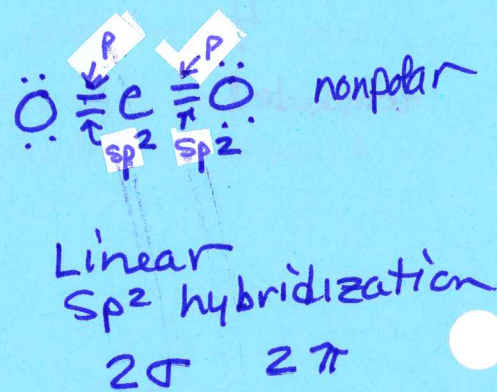 p p
Ö = C = Ö nonpolar
sp² sp2
Linear
Sp² hybridization
2σ 2π